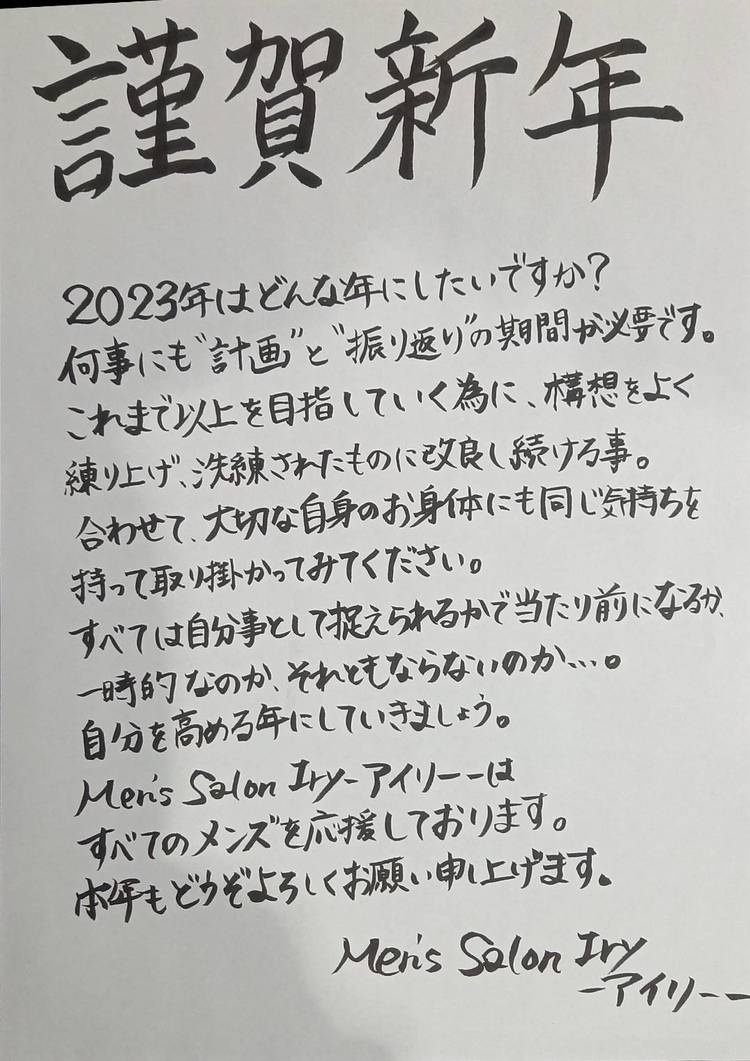 謹賀新年
2023年はどんな年にしたいですか?
何事にも"計画"と"振り返り"の期間が必要です。
これまで以上を目指していく為に、構想をよく
練り上げ、洗練されたものに改良し続ける事。
合わせて、大切な自身のお身体にも同じ気持ちを
持って取り掛かってみてください。
すべては自分事として捉えられるかで当たり前になるか、
一時的なのか、それともならないのか…。
自分を高める年にしていきましょう。
Men's Salon Iry-アイリー-は
すべてのメンズを応援しております。
本年もどうぞよろしくお願い申し上げます。
Men's Salon Iry
-アイリー-